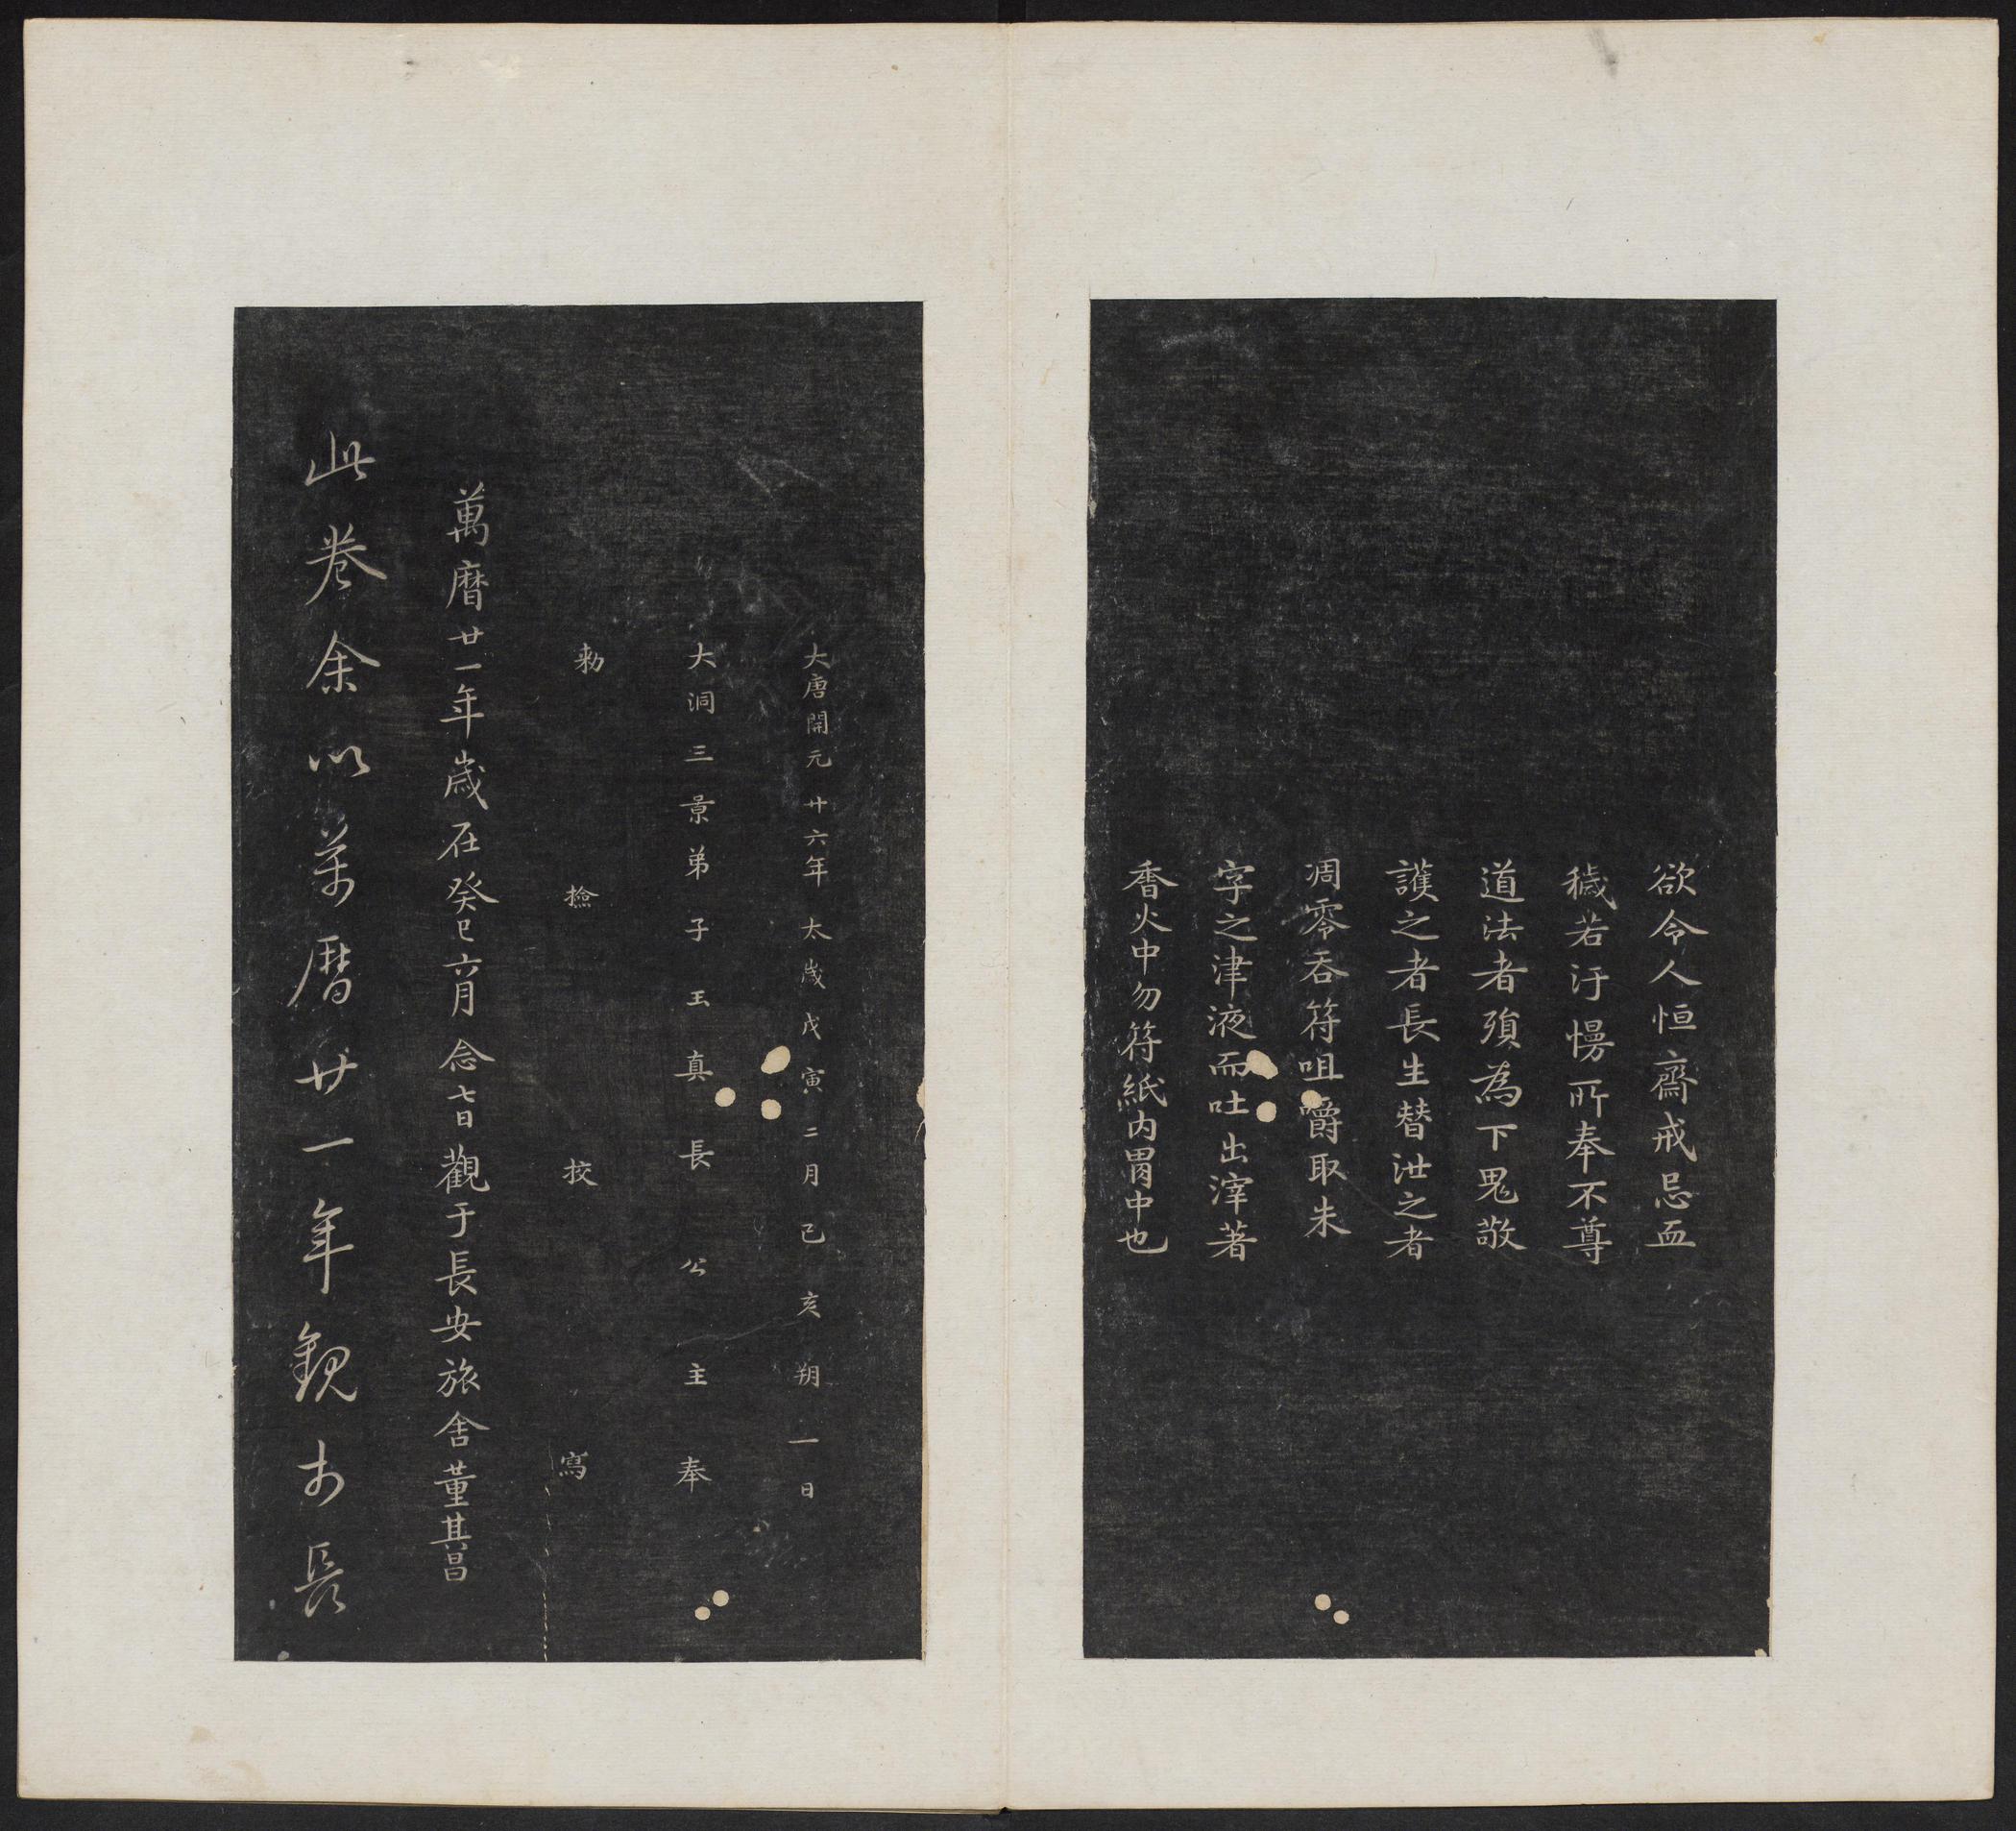 欲令人恒齋戒忌血
穢若汙慢所奉不尊
道法者須為下鬼敬
護之者長生替泄之者
凋零吞符咀嚼取朱
字之津液而吐出滓著
香火中勿符紙內胃中也
大唐開元廿六年太歲戊寅二月己亥朔一日
大洞三景弟子玉真長公主奉
勑撿挍寫
萬曆廿一年歲在癸巳六月念七日觀于長安旅舍董其昌
此卷余以萬曆廿一年觀於長